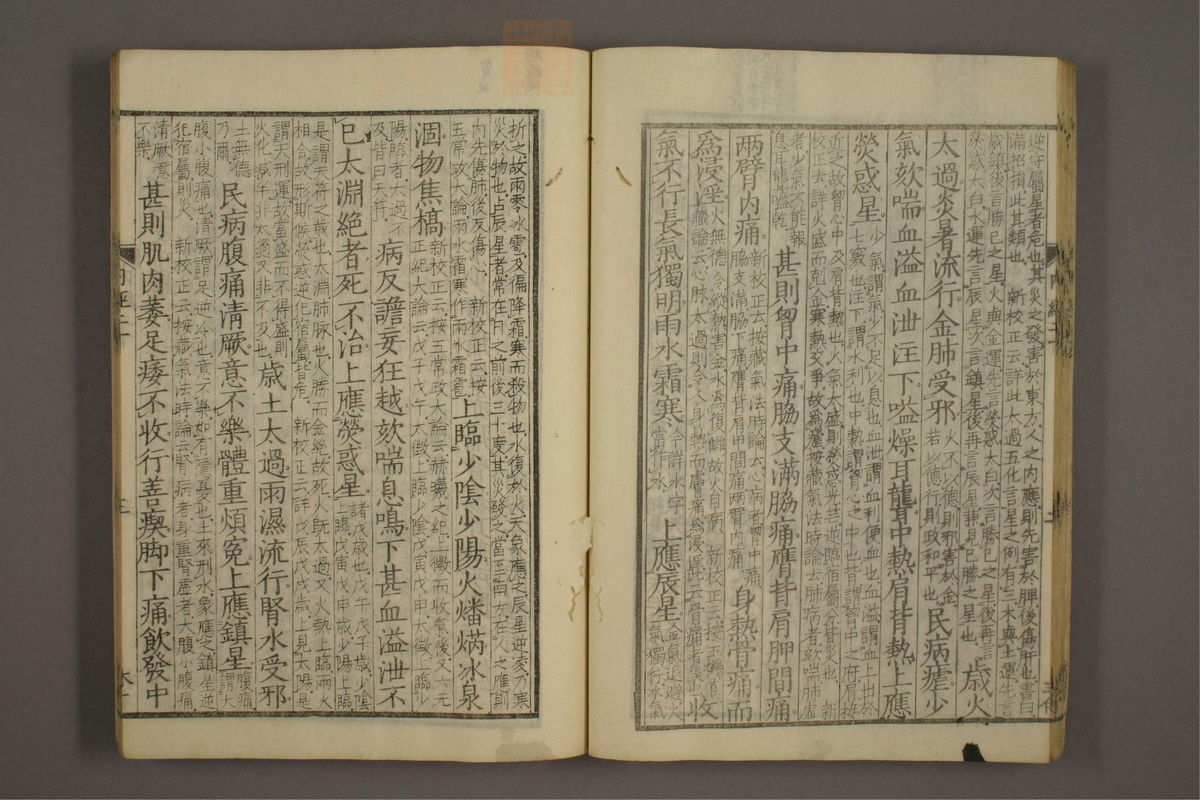 逆守屬星者危也其災之發害於東方人之内應則先害於脾後傷肝也書曰
滿招損此其類也 新校正云詳此大過五化言星之例有三木與土運先言
歲鎮後言勝已之星火與金運先言熒惑太白次言勝已之星後再言
熒惑太白水運先言辰星次言鎮星後再言辰星兼見已勝之星也
歲火
太過炎暑流行金肺受邪
火不以德則邪害於金
若以德行則政和平也
民病瘧少
氣欬喘血溢血泄注下嗌燥耳聾中熱肩背熱上應
熒惑星
少氣謂氣少不足以息也血泄謂血利便血也血溢謂血上出於
七竅也注下謂水利也中熱謂胷心之中也背謂胷中之府肩接
近之故胷心中及肩背熱也火氣大盛則熒惑光芒逆臨宿屬分皆災也 新
校正云詳火盛而克金寒熱交爭故為瘧按藏氣法時論云肺病者欬喘肺虛
者少氣不能報
息耳聾嗌乾
甚則胷中痛脇支滿脇痛膺背肩胛間痛
兩臂内痛
新校正云按藏氣法時論云心病者胷中痛
脇支滿脇下痛膺背肩甲間痛兩臂内痛
身熱骨痛而
為浸淫
火無德令縱熱害金水為復讎故火自病 新校正云按玉機真
藏論云心脉太過則令人身熱而膚痛為浸淫此云骨痛者誤也
收
氣不行長氣獨明雨水霜寒
今詳水字
當作冰
上應辰星
金氣退避火
氣獨行水氣
折之故雨零冰雹及徧降霜寒而殺物也水復於火天象應之辰星逆凌乃寒
災於物也占辰星者常在日之前後三十度其災發之當至南方在人之應則
内先傷肺後反傷心 新校正云按
五常政大論雨水霜寒作雨冰霜雹
上臨少陰少陽火燔焫冰泉
涸物焦槁
新校正云按五常政大論云赫曦之紀上徵而收氣後又六元
正紀大論云戊子戊午太徵上臨少陰戊寅戊申太徵上臨少
陽臨者大過不
及皆曰天符
病反譫妄狂越欬喘息鳴下甚血溢泄不
已太淵絕者死不治上應熒惑星
諸戊歲也戊午戊子歲少陰
上臨戊寅戊申歲少陽上臨
是謂天符之歲也太淵肺脉也火勝而金絕故死火既太過又火熱上臨兩火
相合故形斯候熒惑逆犯宿屬皆危 新校正云詳戊辰戊戌歲上見太陽是
謂天刑運故當盛而不得盛則
火化減半非太過又非不及也
歲土太過雨濕流行腎水受邪
土無德
乃爾
民病腹痛清厥意不樂體重煩冤上應鎮星
腹痛
謂大
腹小腹痛也清厥謂足逆冷也意不樂如有隱憂也土來刑水象應之鎮星逆
犯宿屬則災 新校正云按藏氣法時論云腎病者身重腎虛者大腹小腹痛
清厥意
不樂
甚則肌肉萎足痿不收行善瘈脚下痛飲發中